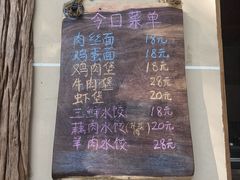 今日菜单
肉丝面 18元
鸡蛋面 18元
鸡肉堡 18元
牛肉堡 28元
虾堡 20元
三鲜水饺 18元
蒜肉水饺 20元
羊肉水饺 28元